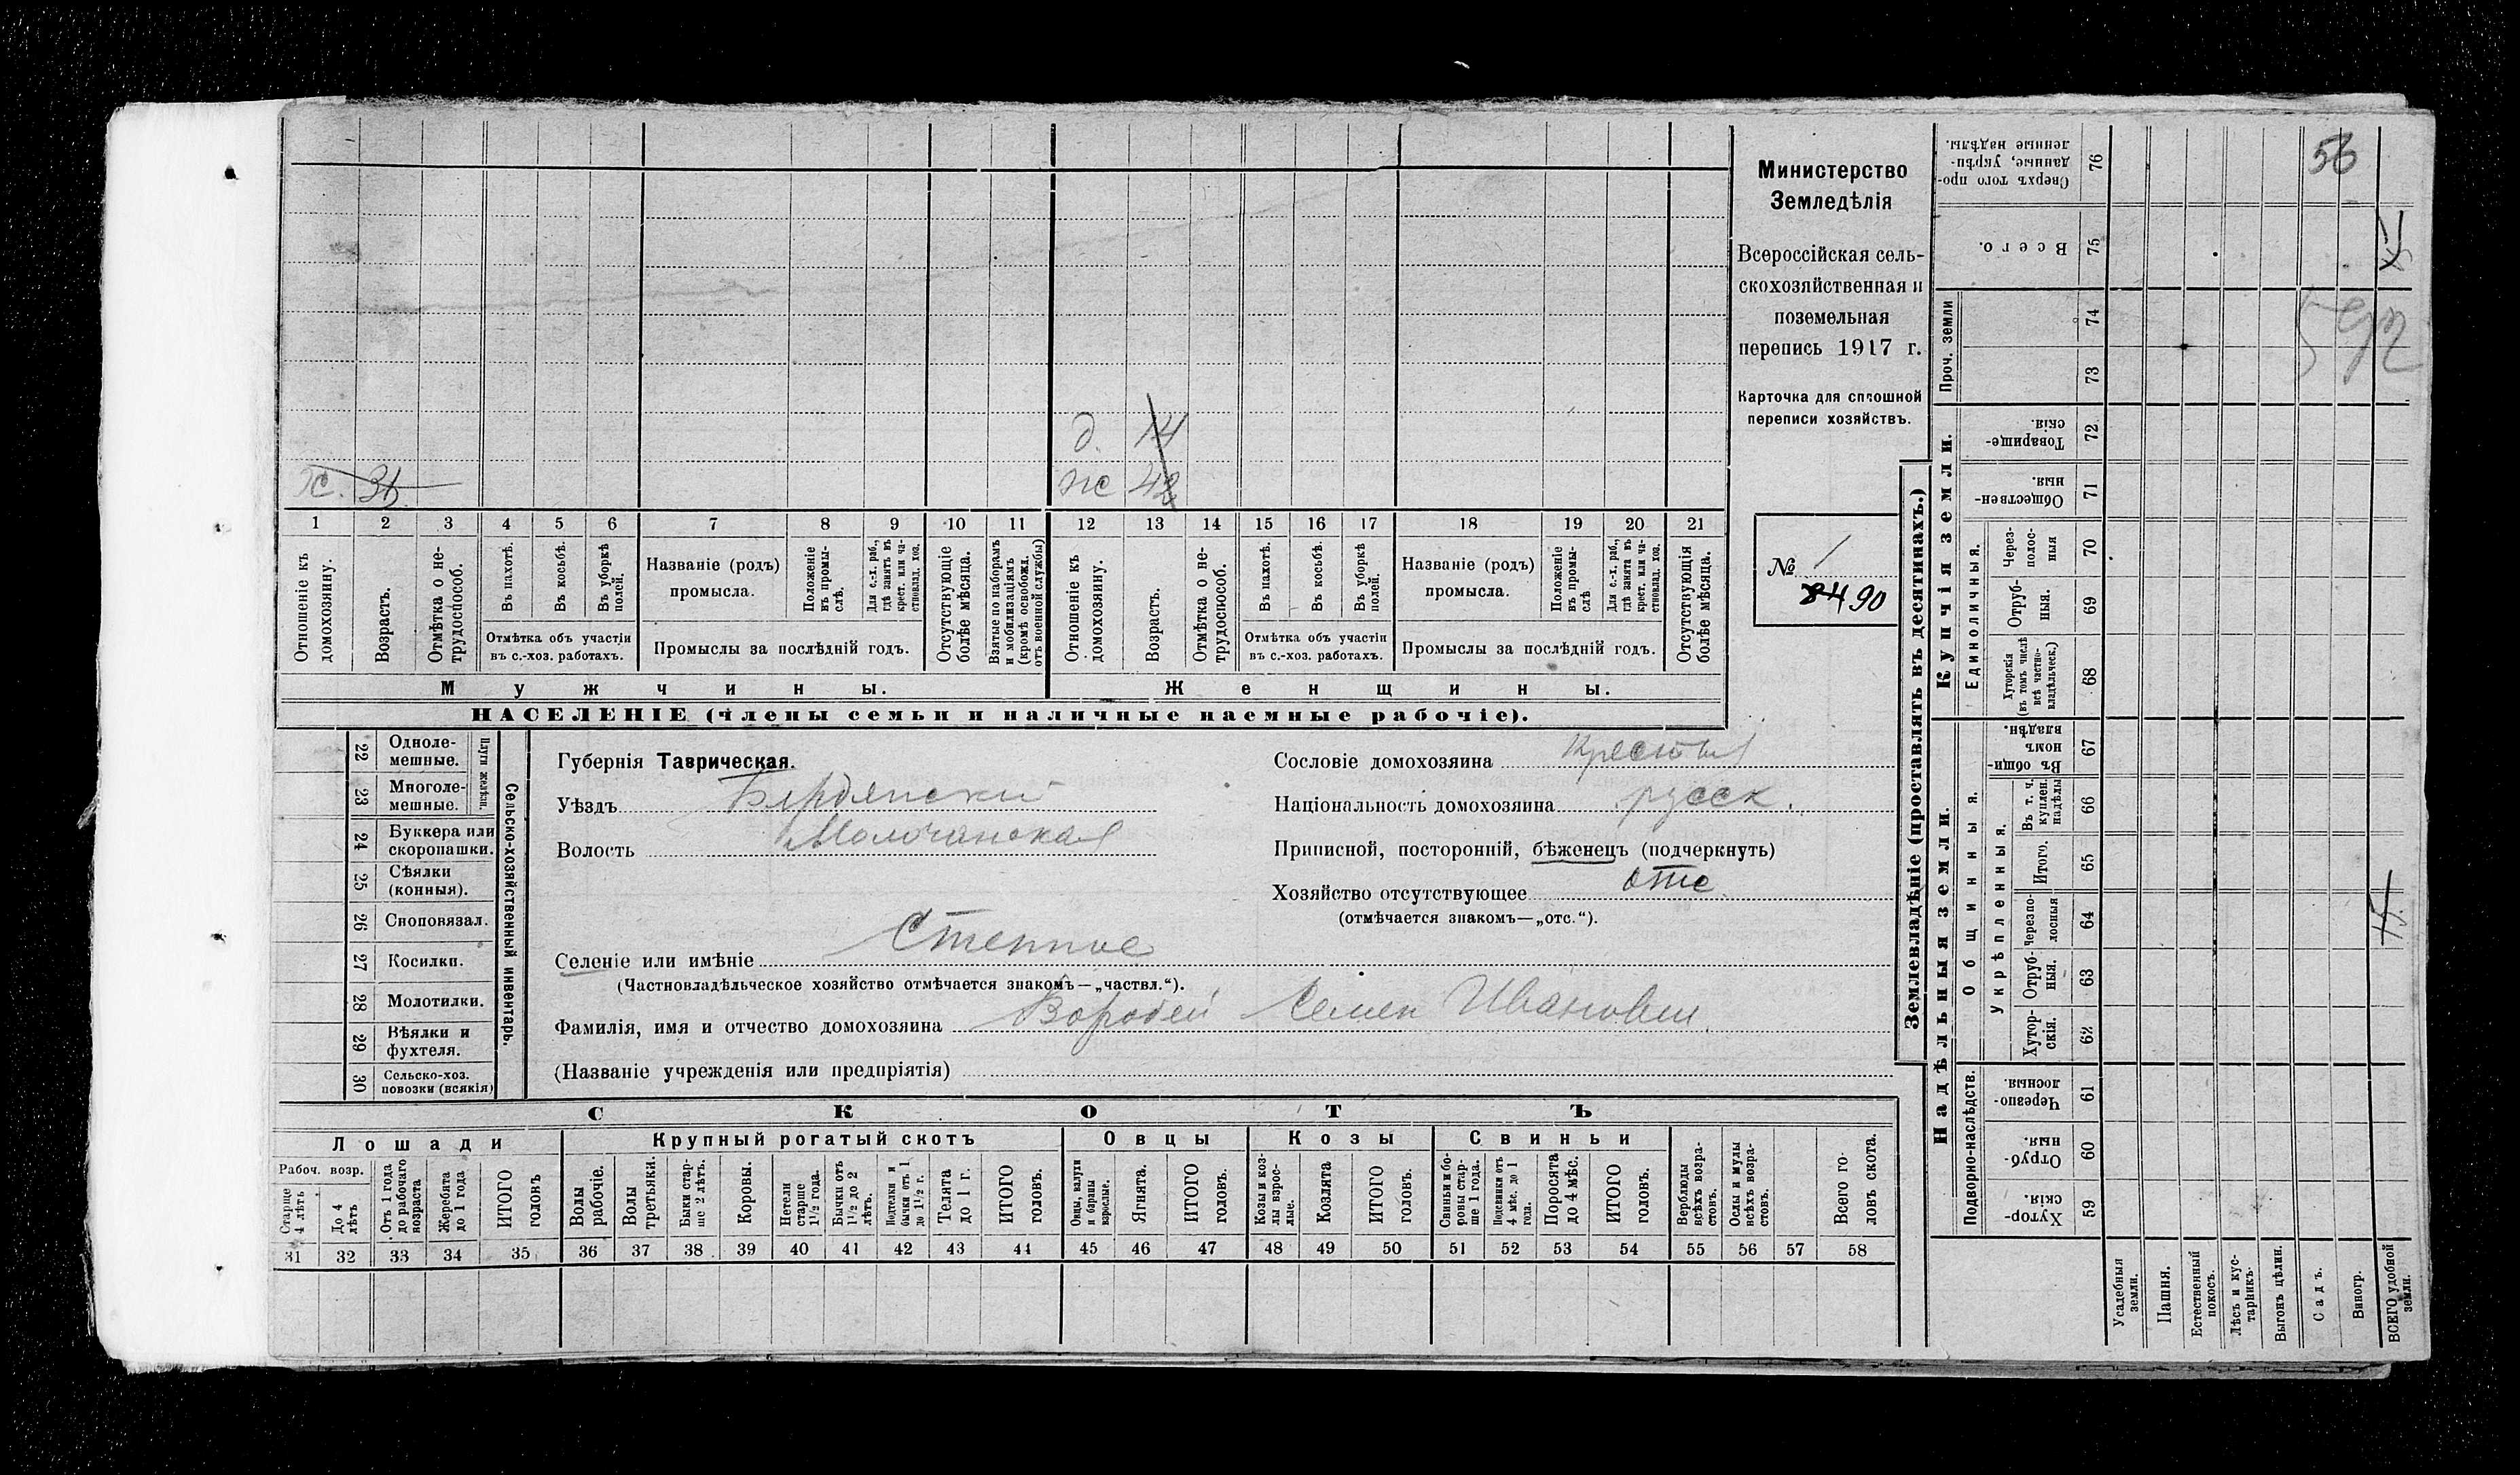 56
Министерство
Земледѣлія
Всероссійская сель-
скохозяйственная и
поземельная
перепись 1917 г.
Карточка для сплошной
переписи хозяйствъ.
№ 1
90
д. 14
ж. 36
ж 42
1 2 3 4 5 6 7 8 9 10 11 12 13 14 15 16 17 18 19 20 21
Отношеніе къ домохозяину.
Возрастъ.
Отмѣтка о не-трудоспособ.
Въ пахотѣ.
Въ косьбѣ.
Въ уборкѣ полей.
Отмѣтка объ участіи
въ с.-хоз. работахъ.
Названіе (родъ)
промысла.
Положеніе въ промы-слѣ.
Для с.-х. раб., гдѣ занятъ въ крест. или ча-стновлад. хоз.
Промыслы за послѣдній годъ.
Отсутствующіе болѣе мѣсяца.
Взятые по наборамъ и мобилизаціямъ (кромѣ освобожд. отъ военной службы)
Отношеніе къ домохозяину.
Возрастъ.
Отмѣтка о не-трудоспособ.
Въ пахотѣ.
Въ косьбѣ.
Въ уборкѣ полей.
Отмѣтка объ участіи
въ с.-хоз. работахъ.
Названіе (родъ)
промысла.
Положеніе въ промы-слѣ
Для с.-х. раб., гдѣ занята въ крест. или ча-стновлад. хоз.
Промыслы за послѣдній годъ.
Отсутствующія болѣе мѣсяца.
Мужчины.
Женщины.
НАСЕЛЕНІЕ (члены семьи и наличные наемные рабочіе).
Сельско-хозяйственный инвентарь.
Плуги желѣзн.
22 Одноле-мешные.
23 Многоле-мешные.
24 Буккера или скоропашки.
25 Сѣялки (конныя).
26 Сноповязал.
27 Косилки.
28 Молотилки.
29 Вѣялки и фухтеля.
30 Сельско-хоз. повозки (всякія)
Губернія Таврическая.
Уѣздъ Бердянский
Волость Молочанская
Селеніе или имѣніе Степное
(Частновладѣльческое хозяйство отмѣчается знакомъ—„частвл.“).
Фамилія, имя и отчество домохозяина Воробей Семен Иванович
(Названіе учрежденія или предпріятія)
Сословіе домохозяина
Національность домохозяина русск.
Приписной, посторонній, бѣженецъ (подчеркнуть)
Хозяйство отсутствующее отс
(отмѣчается знакомъ—„отс.“).
СКОТЪ
Лошади
Крупный рогатый скотъ
Овцы
Козы
Свиньи
Рабоч. возр.
Старше 4 лѣтъ
До 4 лѣтъ
Отъ 1 года до рабочаго возраста
Жеребята до 1 года
ИТОГО головъ
Волы рабочіе.
Волы третьяки.
Быки стар-ше 2 лѣтъ.
Коровы.
Нетели старше 1½ года.
Бычки отъ 1½ до 2 лѣтъ.
Подтелки и бычки отъ 1 до 1½ г.
Телята до 1 г.
ИТОГО головъ.
Овцы, валухи и бараны взрослые.
Ягнята.
ИТОГО головъ.
Козы и коз-лы взрос-лые.
Козлята
ИТОГО головъ.
Свиньи и бо-ровы стар-ше 1 года.
Подсвинки отъ 4 мѣс. до 1 года.
Поросята до 4 мѣс.
ИТОГО головъ.
Верблюды всѣхъ возра-стовъ.
Ослы и мулы всѣхъ возра-стовъ.
Всего го-ловъ скота.
31 32 33 34 35 36 37 38 39 40 41 42 43 44 45 46 47 48 49 50 51 52 53 54 55 56 57 58
Землевладѣніе (проставлять въ десятинахъ.)
Купчія земли.
Надѣльныя земли.
Сверхъ того про-данные, укрѣп-ленные надѣлы. 76
Всего. 75
Проч. земли 74 73
Товарище-скія. 72
Обществен-ныя. 71
Единоличныя.
Через-полос-ныя 70
Отруб-ныя. 69
Хуторскія (въ томъ числѣ всѣ частно-владѣльческ.) 68
Общинныя.
Въ общин-номъ владѣн. 67
Укрѣпленныя.
Въ т. ч. куплен. надѣлы 66
Итого. 65
Черезпо-лосныя 64
Отруб-ныя. 63
Хутор-скія. 62
Подворно-наслѣдств.
Черезпо-лосныя. 61
Отруб-ныя. 60
Хутор-скія. 59
Усадебныя земли.
Пашня.
Естественный покосъ.
Лѣсъ и кус-тарникъ.
Выгонъ цѣлин.
Садъ.
Виногр.
ВСЕГО удобной земли.